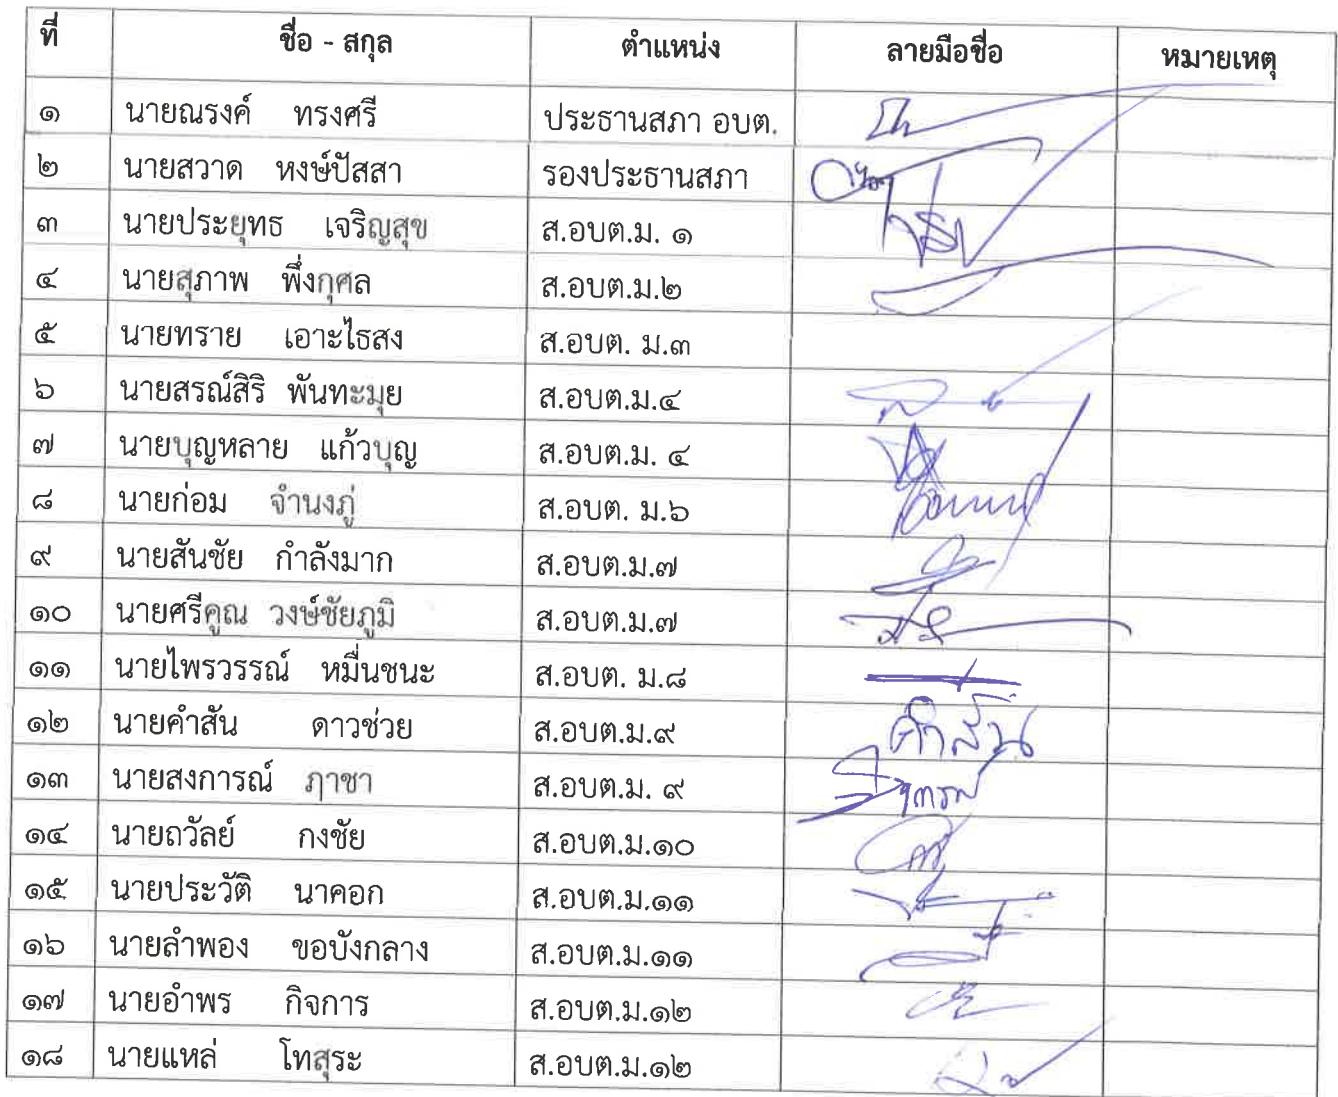 ที่ ชื่อ - สกุล ตำแหน่ง ลายมือชื่อ หมายเหตุ
๑ นายณรงค์ ทรงศรี ประธานสภา อบต.
๒ นายสวาด หงษ์ปัสสา รองประธานสภา
๓ นายประยุทธ เจริญสุข ส.อบต.ม. ๑
๔ นายสุภาพ พึ่งกุศล ส.อบต.ม.๒
๕ นายทราย เอาะไธสง ส.อบต. ม.๓
๖ นายสรณ์สิริ พันทะมุย ส.อบต.ม.๔
๗ นายบุญหลาย แก้วบุญ ส.อบต.ม. ๔
๘ นายก่อม จำนงภู่ ส.อบต. ม.๖
๙ นายสันชัย กำลังมาก ส.อบต.ม.๗
๑๐ นายศรีคูณ วงษ์ชัยภูมิ ส.อบต.ม.๗
๑๑ นายไพรวรรณ์ หมื่นชนะ ส.อบต. ม.๘
๑๒ นายคำสัน ดาวช่วย ส.อบต.ม.๙ คำสัน
๑๓ นายสงการณ์ ภาชา ส.อบต.ม. ๙
๑๔ นายถวัลย์ กงชัย ส.อบต.ม.๑๐
๑๕ นายประวัติ นาคอก ส.อบต.ม.๑๑
๑๖ นายลำพอง ขอบังกลาง ส.อบต.ม.๑๑
๑๗ นายอำพร กิจการ ส.อบต.ม.๑๒
๑๘ นายแหล่ โทสุระ ส.อบต.ม.๑๒